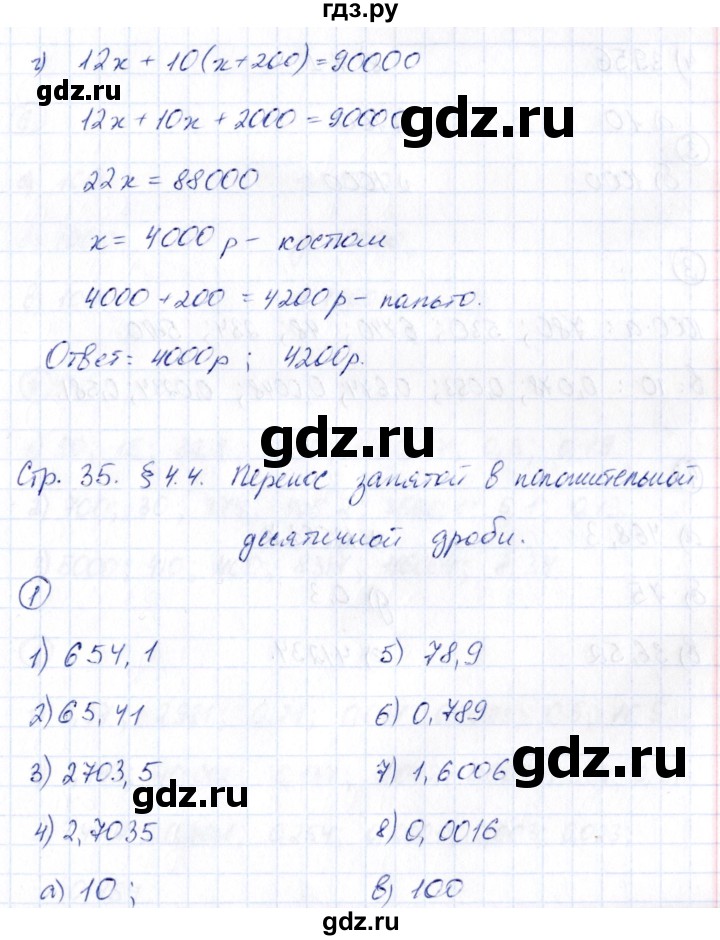 гдз.ру
г) 12х + 10(х+200) = 90000
gdz.ru
12х + 10х + 2000 = 90000
gdz.ru
22х = 88000
х = 4000р - костюм
4000 + 200 = 4200р - пальто.
Ответ: 4000р ; 4200р.
gdz.ru
Стр. 35. § 4.4. Перенос запятой в положительной
десятичной дроби.
1
1) 654,1 5) 78,9
2) 65,41 6) 0,789
3) 2703,5 7) 1,6006
gdz.ru
gdz.ru
4) 2,7035 8) 0,0016
а) 10 ; в) 100
gdz.ru